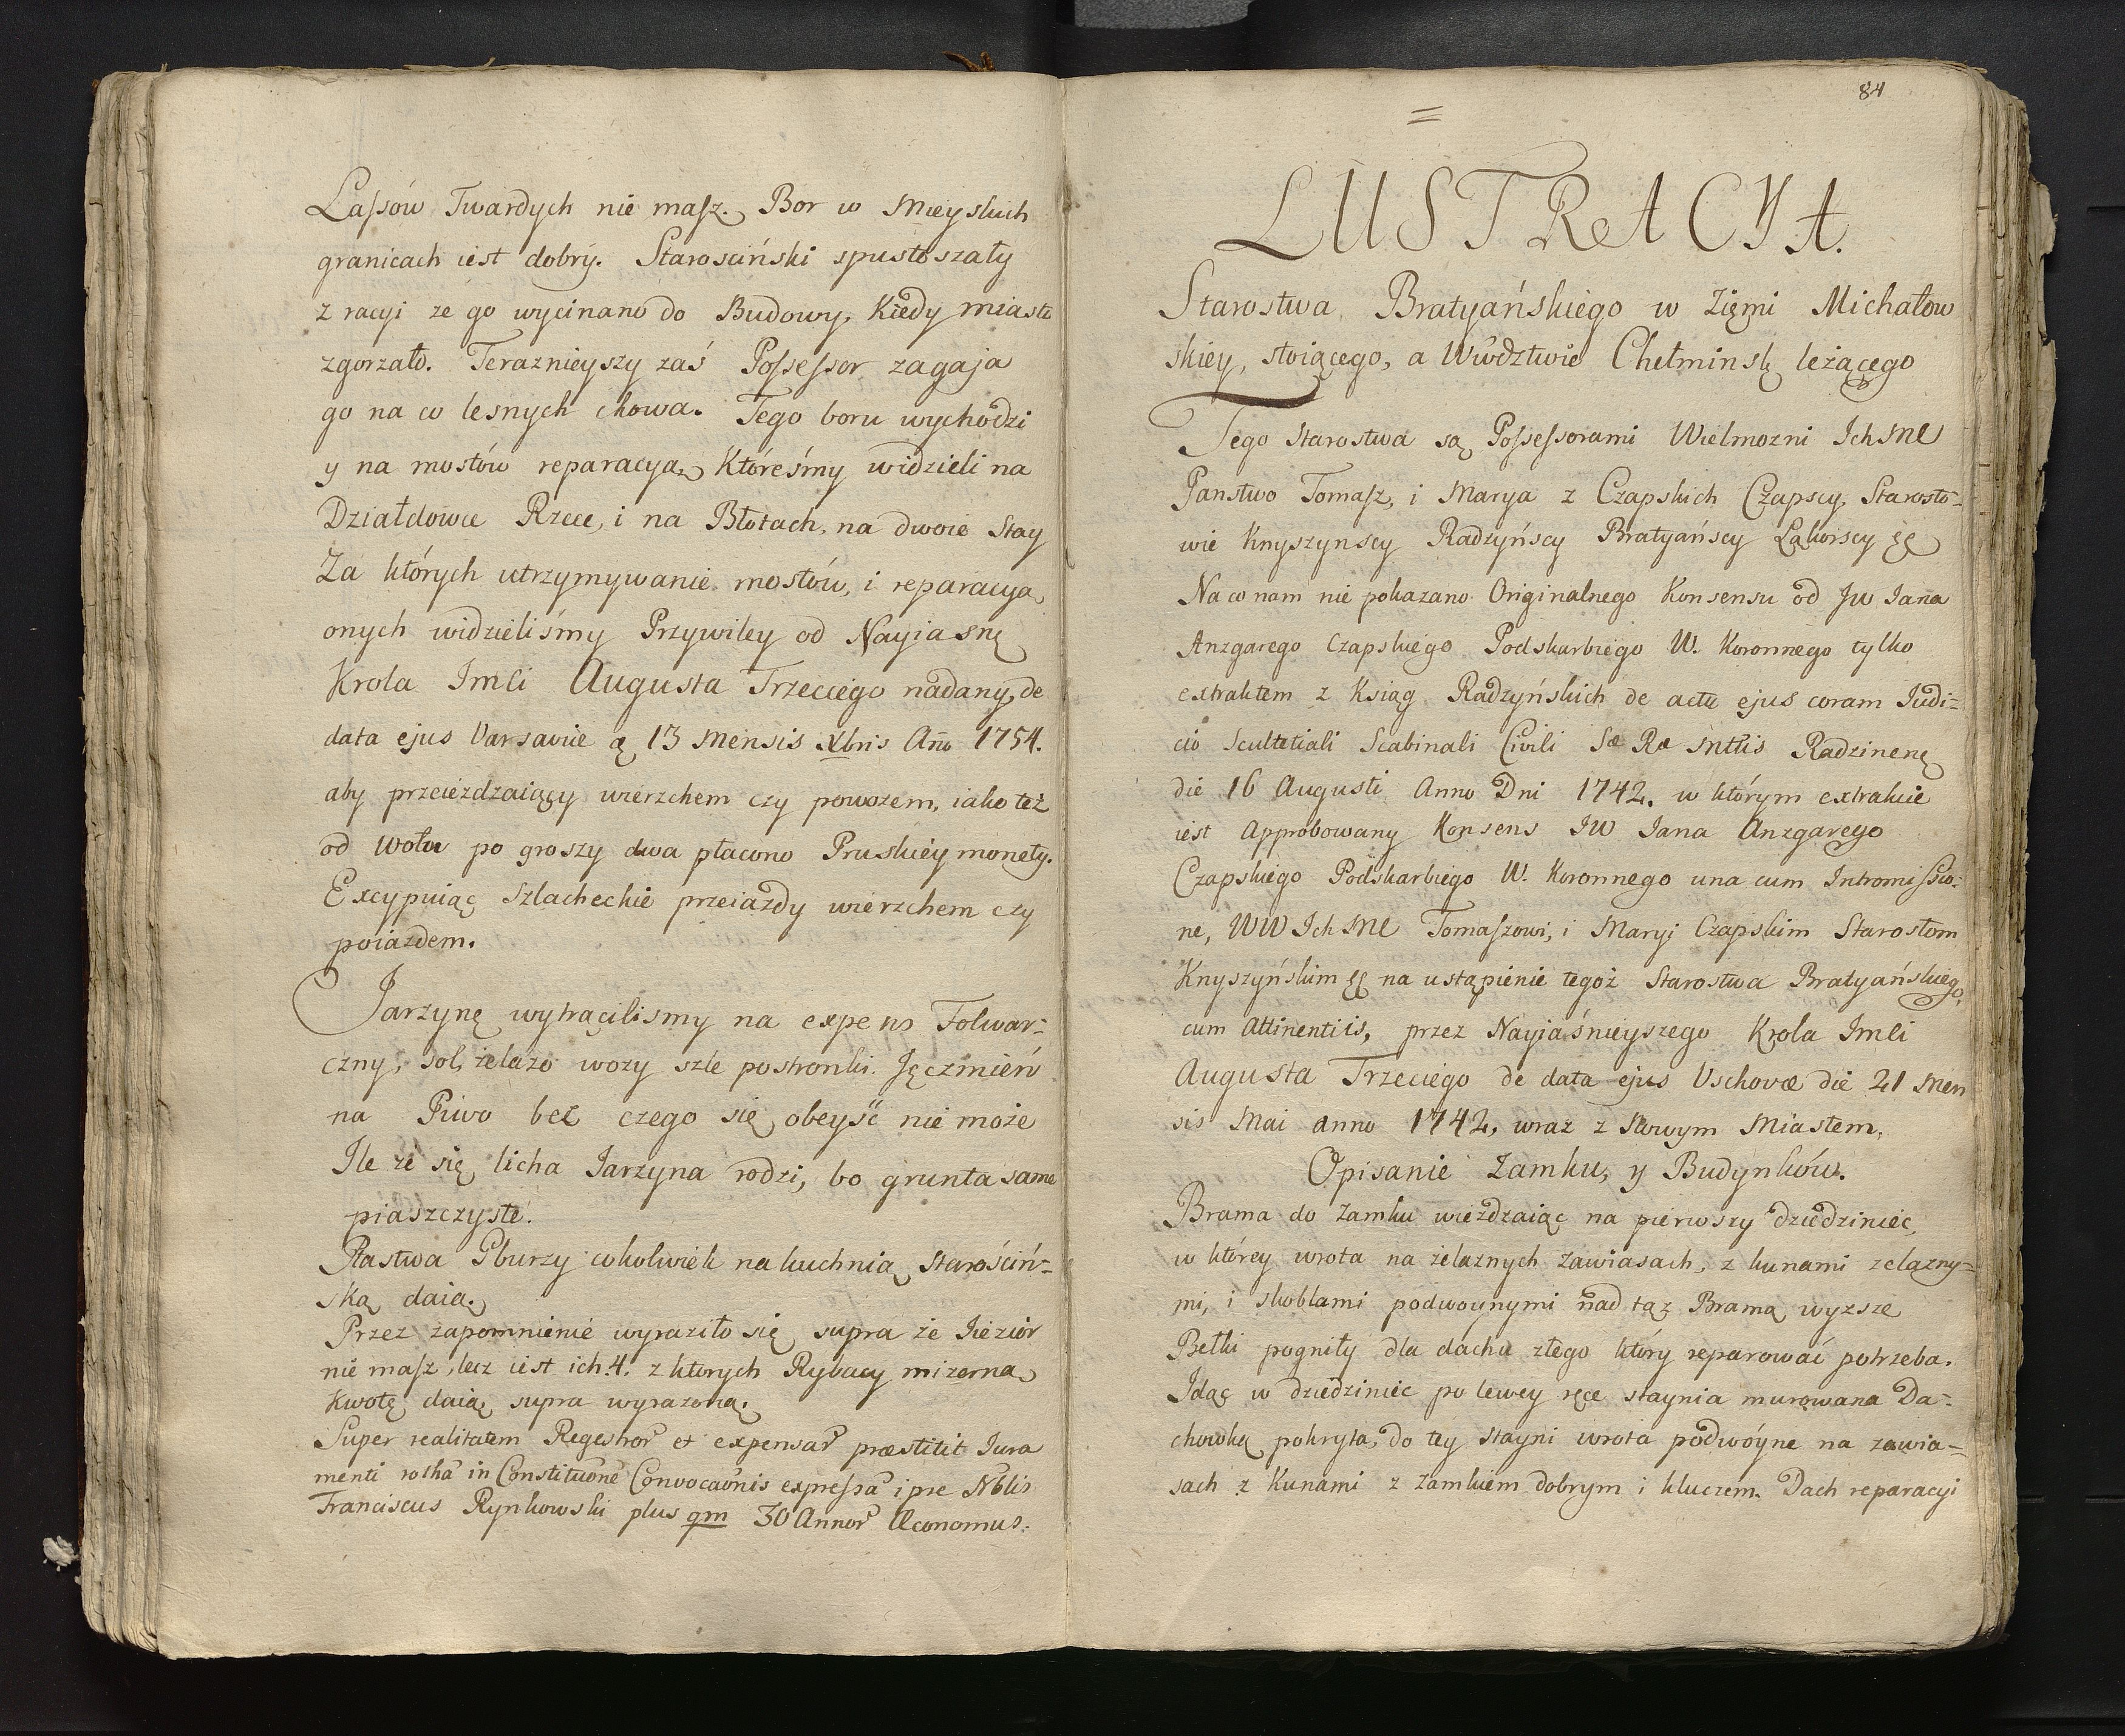 Lassów Twardych nie masz. Bor w Mieyskich
granicach iest dobry. Starosciński spustoszały
z racyi ze go wycinano do Budowy, Kiedy miasto
zgorzało. Teraznieyszy zaś Possessor zagaja
go na co lesnych chowa. Tego boru wychodzi
y na mostów reparacyą, Któreśmy widzieli na
Działdowce Rzece, i na Błotach, na dwoie Stay
Za których utrzymywanie mostów, i reparacyą
onych widzieliśmy Przywiley od Nayiasnę
Krola Imci Augusta Trzeciego nadany, de
data ejus Varsaviæ ą 13 Mensis Xbris Año 1754.
aby przeieżdzaiący wierzchem czy powozem, iako też
od Wołu po groszy dwa płacono Pruskiey monety.
Excypuiąc Szlacheckie przeiazdy wierzchem czy
poiazdem.
Jarzynę wytrącilismy na expens Folwar=
czny, sol, żelazo wozy szle postronki. Jęczmień
na Piwo bez czego się obeyść nie może
Ile że się licha Jarzyna rodzi, bo grunta same
piaszczyste.
Ptastwa Gburzy cokolwiek na kuchnią Starościń=
ską daią.
Przez zapomnienie wyraziło się supra że Jezior
nie masz, lecz iest ich 4. z ktorych Rybacy mizerną
kwotę daią supra wyrażoną.
Super realitatem Regestror̃ et expensar̃ præstitit Jura
menti rothã in Constituõne Convocaõnis expressã ipse Nblis
Franciscus Rynkowski plus qm 30 Annor̃ Œconomus.
84
LUSTRACYA.
Starostwa Bratyańskiego w Ziemi Michałow
skiey, stoiącego, a Wwdztwie Chełminsk leżącego
Tego Starostwa są Possessorami Wielmozni Ich MC
Panstwo Tomasz, i Marya z Czapskich Czapscy Starosto=
wie Knyszynscy Radzyńscy Bratyańscy Łąkorscy &&
Na co nam nie pokazano Originalnego Konsensu od Jw Jana
Anzgarego Czapskiego Podskarbiego W. Koronnego tylko
extraktem z Ksiąg Radzyńskich de actu ejus coram Judi=
cio Scultetiali Scabinali Civili Sæ Ræ Mttis Radzinenę
die 16 Augusti Anno Dni 1742. w którym extrakcie
iest Approbowany Konsens JW Jana Anzgarego
Czapskiego Podskarbiego W. Koronnego una cum Intromissio=
ne, WW Ich MC Tomaszowi, i Maryi Czapskim Starostom
Knyszyńskim && na ustąpienie tegoż Starostwa Bratyańskiego,
cum Attinentiis, przez Nayiaśnieyszego Krola Imci
Augusta Trzeciego de data ejus Vschovæ die 21 Men
sis Mai anno 1742, wraz z Nowym Miastem.
Opisanie Zamku, y Budynków.
Brama do Zamku wieżdzaiąc na pierwszy dziedziniec,
w którey wrota na żelaznych Zawiasach, z kunami zelazny=
mi, i skoblami podwoynymi nad tąż Bramą wyższe
Belki pogniły dla dachu złego który reparować potrzeba.
Idąc w dziedziniec po lewey ręce staynia murowana Da=
chowką pokryta, do tey stayni wrota podwóyne na zawia=
sach z Kunami z Zamkiem dobrym i kluczem. Dach reparacyi